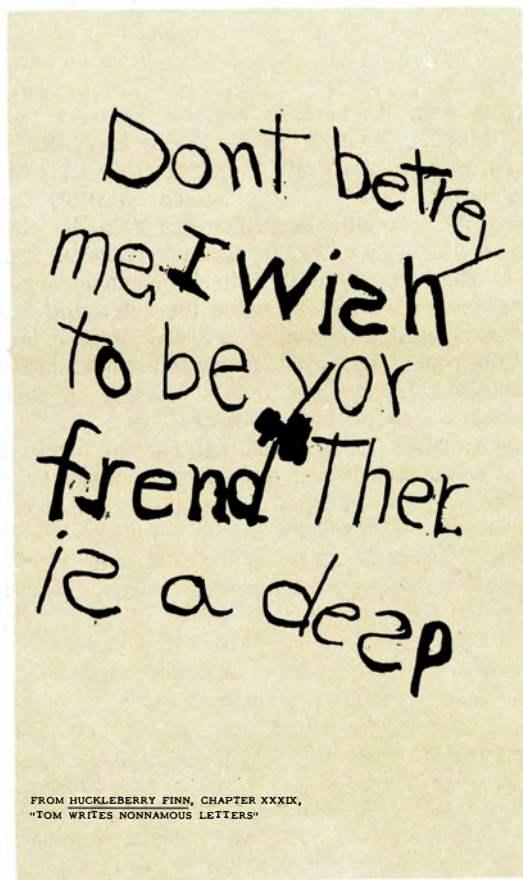 Dont betrey
me, I wish
to be yor
frend Ther
is a desp
FROM HUCKLEBERRY FINN, CHAPTER XXXIX,
"TOM WRITES NONNAMOUS LETTERS"